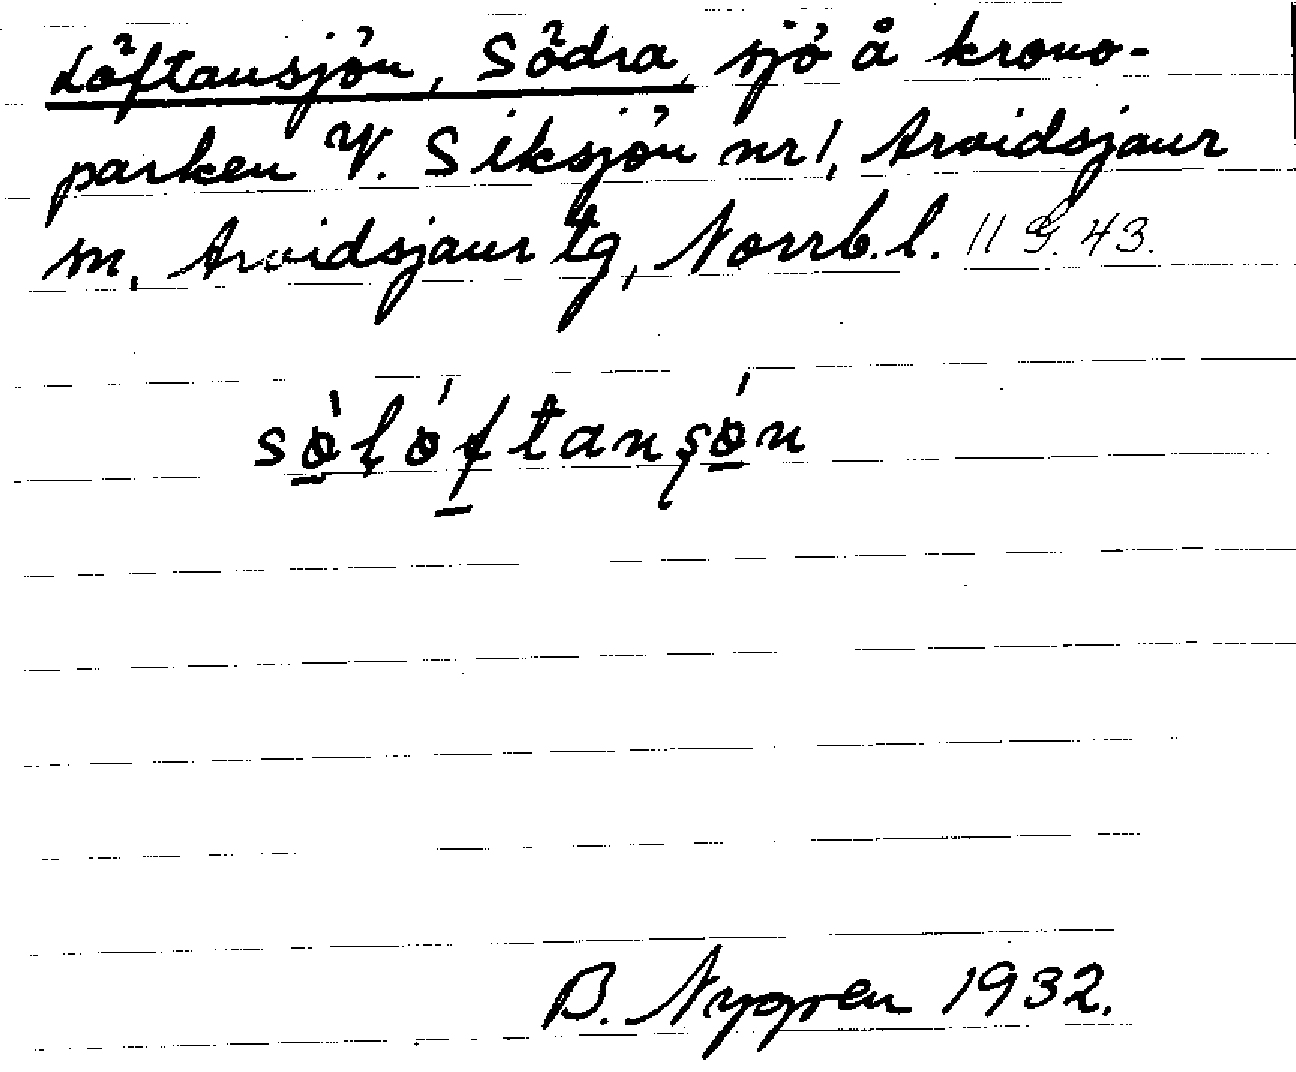 Löftansjön, Södra, sjö å krono-
parken V. Siksjön nr 1, Arvidsjaur
sn, Arvidsjaur tg, Norrb. l. 43.
B. Nygren 1932.